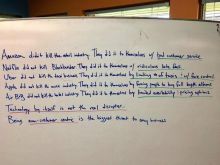 Amazon didn't kill the retail industry. They did it to themselves w/ bad customer service
Netflix did not kill Blockbuster. They did it to themselves w/ ridiculous late fees
Uber did not kill the taxi business. They did it to themselves by limiting # of taxis w/ fare control
Apple did not kill the music industry. They did it to themselves by forcing people to buy full length albums
Air BnB did not kill the hotel industry. They did it to themselves by limited availability & pricing options
Technology by itself is not the real disrupter.
Being non-customer centric is the biggest threat to any business